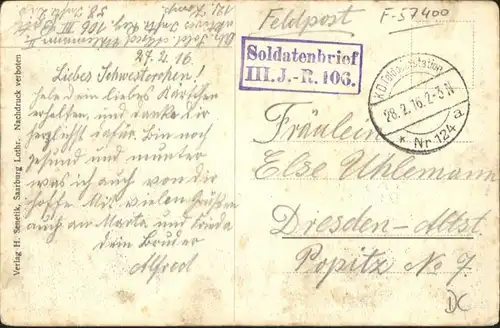 Feldpost
F-57400
Soldatenbrief
III. J.-R. 106.
K.D. Feldpoststation
28.2.16. 2-3 N
* Nr. 124 a
Fräulein
Else Uhlemann
Dresden-Altst.
Popitz No 7.
DC
Abs. Sold. Alfred Uhlemann II.
Inftr. Reg. 106 III Batl.
12. Komp.
27.2.16
Liebes Schwesterchen!
Habe dein liebes Kärtchen
erhalten, und danke dir
herzlichst dafür. Bin noch
gesund und munter
was ich auch von dir
hoffe. Mit vielen Grüßen
auch an Marta und
dein Bruder
Alfred
Verlag H. Senetik, Saarburg Lothr. Nachdruck verboten